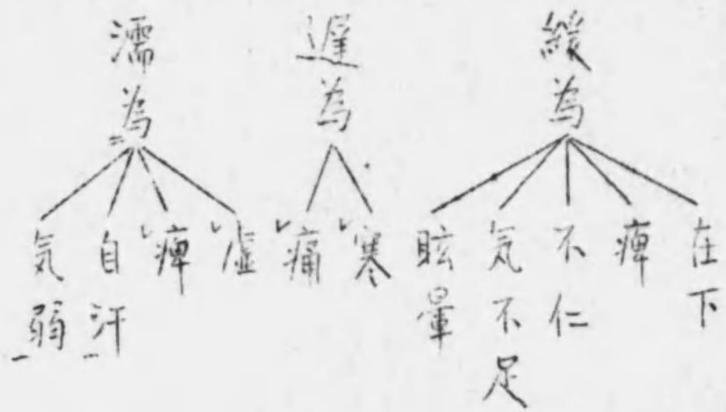 緩為
在下
痺
不仁
気不足
眩暈
遅為
寒
痛
濡為
虚
痺
自汗
気弱